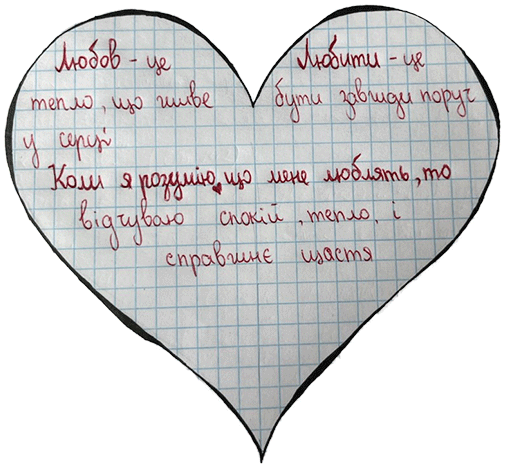 Любов - це
тепло, що живе
у серці
Любити - це
бути завжди поруч
Коли я розумію, що мене люблять, то
відчуваю спокій, тепло, і
справжнє щастя